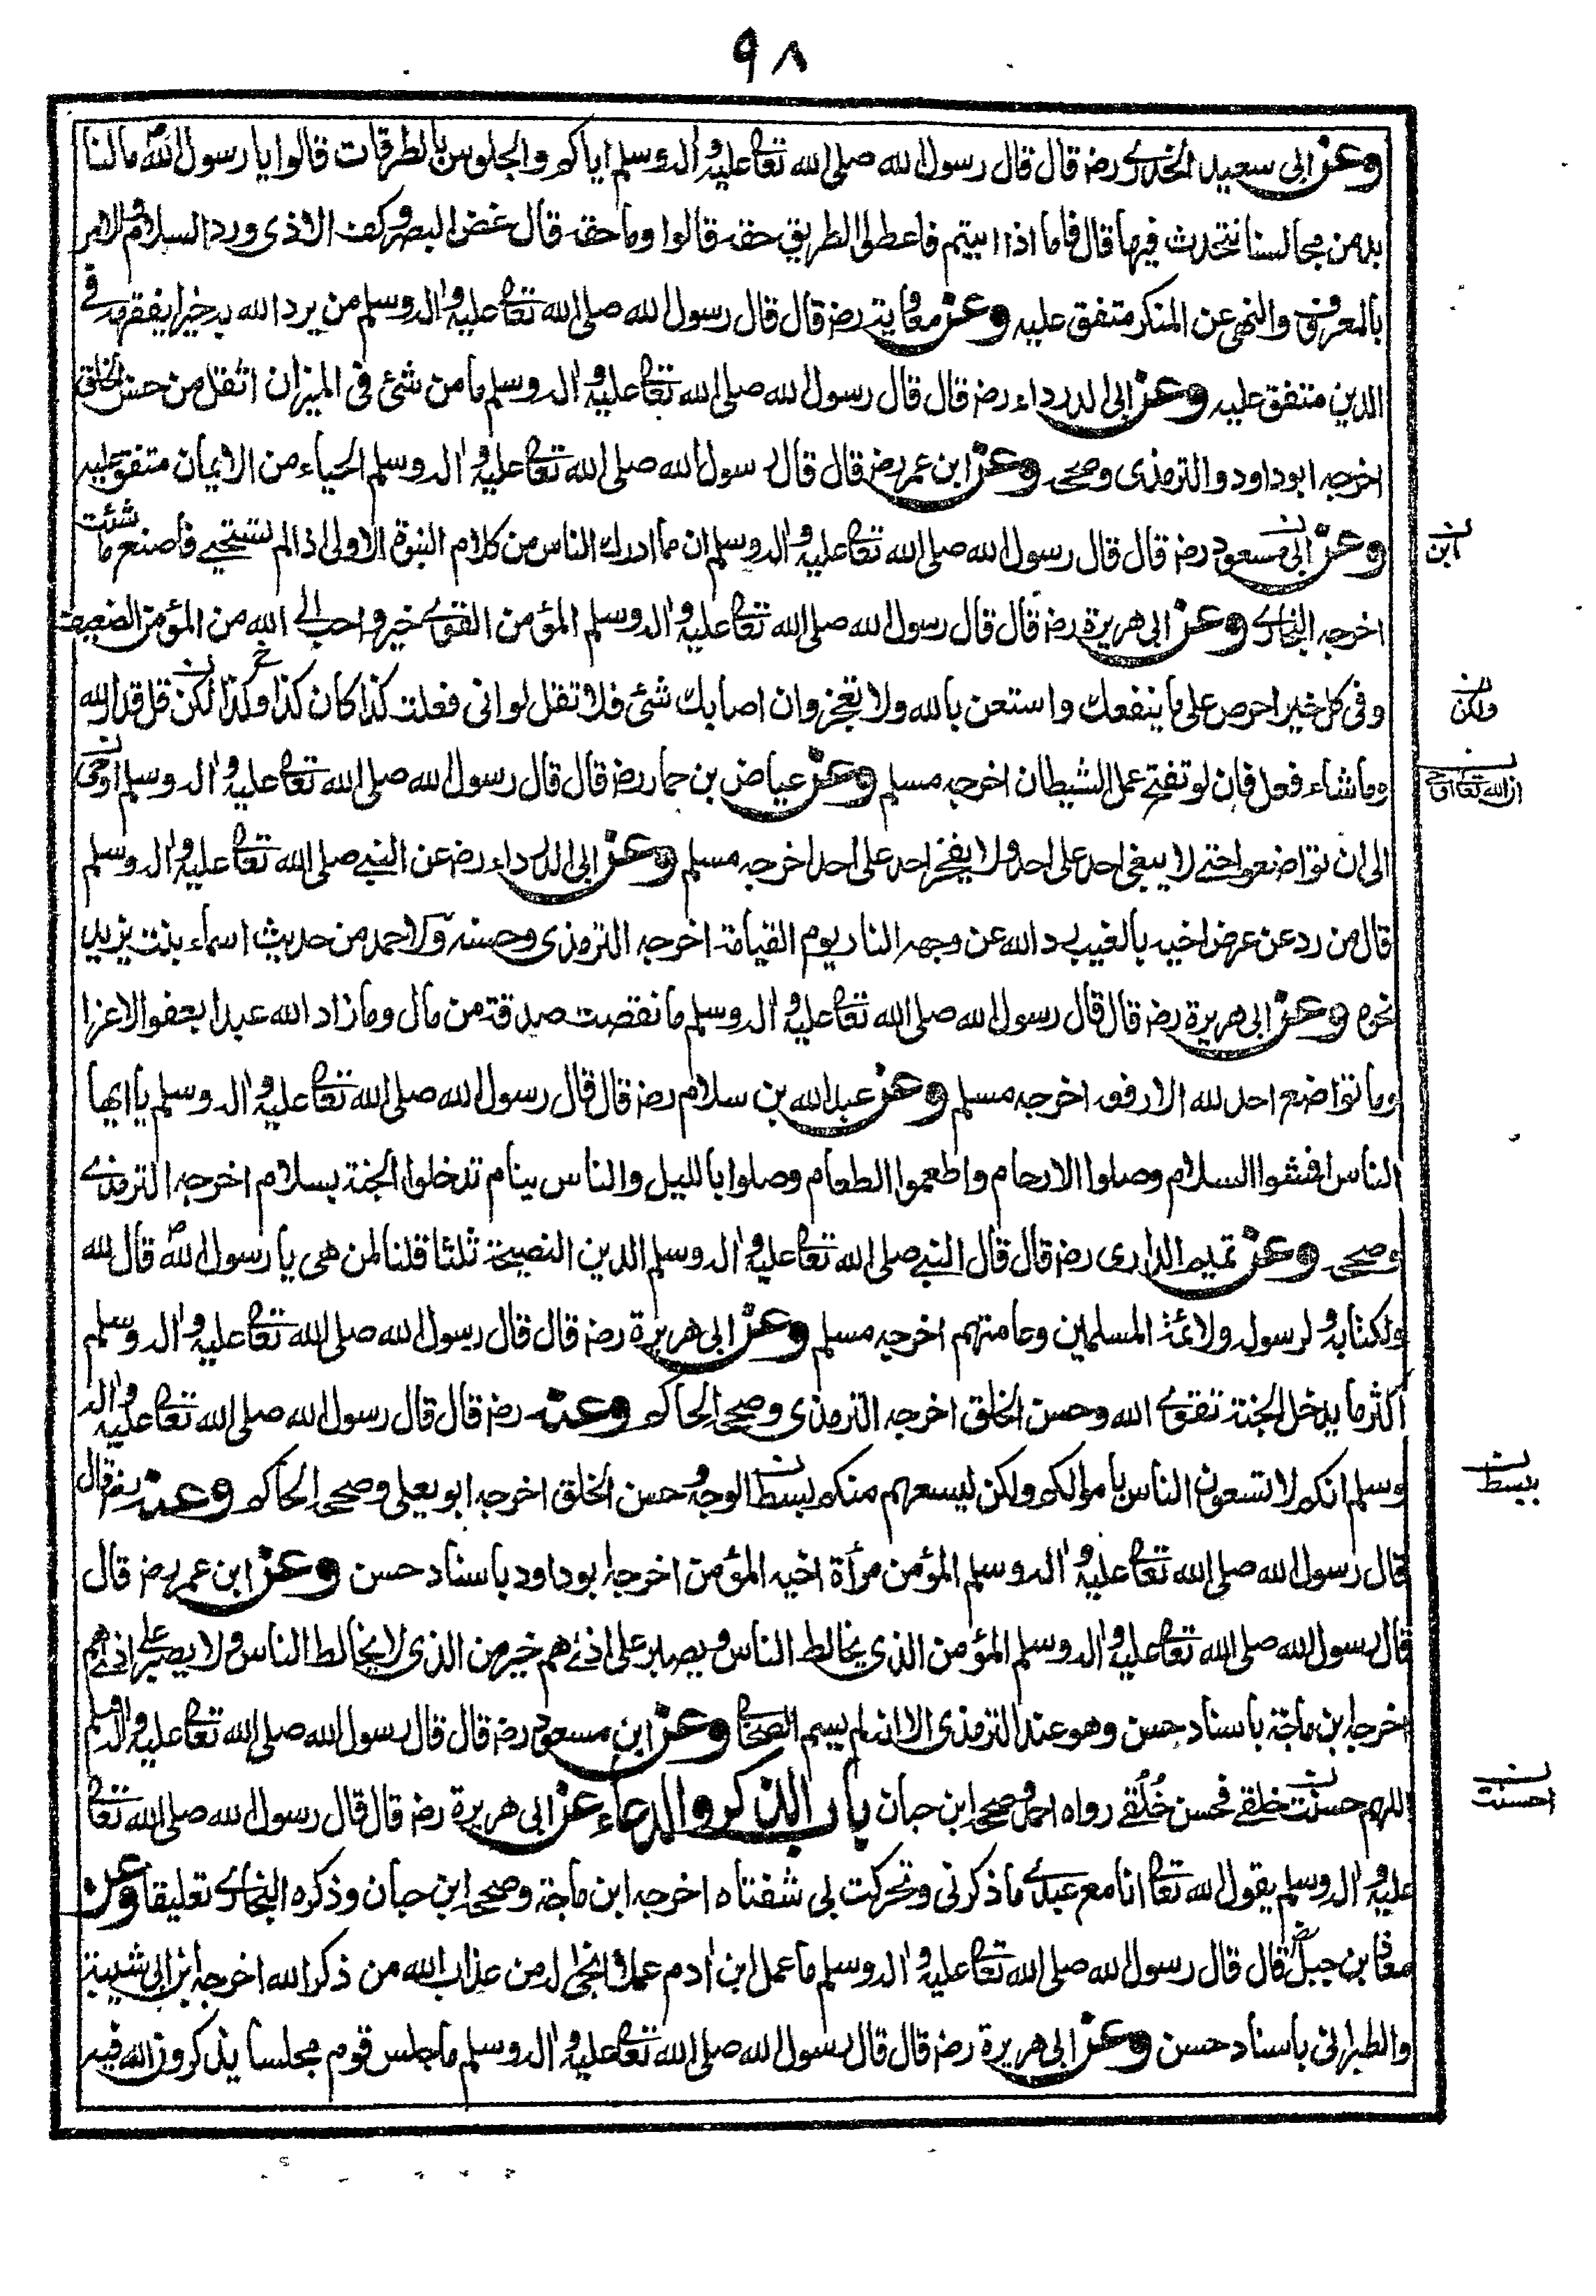 ٩٨
وعن ابى سعيد الخدرى رضـ قال قال رسول الله صلى الله تعالى عليه واله وسلم اياكم والجلوس بالطرقات قالوا يا رسول الله مالنا
بد من مجالسنا نتحدث فيها قال فاما اذا ابيتم فاعطوا الطريق حقه قالوا وما حقه قال غض البصر وكف الاذى ورد السلام والامر
بالمعروف والنهى عن المنكر متفق عليه وعن معاوية رضـ قال قال رسول الله صلى الله تعالى عليه واله وسلم من يرد الله به خيرا يفقهه فى
الدين متفق عليه وعن ابى الدرداء رضـ قال قال رسول الله صلى الله تعالى عليه واله وسلم ما من شئ فى الميزان اثقل من حسن الخلق
اخرجه ابو داود والترمذى وصححه وعن ابن عمر رضـ قال قال رسول الله صلى الله تعالى عليه واله وسلم الحياء من الايمان متفق عليه
وعن ابى مسعود رضـ قال قال رسول الله صلى الله تعالى عليه واله وسلم ان مما ادرك الناس من كلام النبوة الاولى اذا لم تستحيى فاصنع ما شئت
ابن
اخرجه البخارى وعن ابى هريرة رضـ قال قال رسول الله صلى الله تعالى عليه واله وسلم المؤمن القوى خير واحب الى الله من المؤمن الضعيف
وفى كل خير احرص على ما ينفعك واستعن بالله ولا تعجز وان اصابك شئ فلا تقل لو انى فعلت كذا كان كذا وكذا لكن قل قدر الله
ولكن
وما شاء فعل فان لو تفتح عمل الشيطان اخرجه مسلم وعن عياض بن حمار رضـ قال قال رسول الله صلى الله تعالى عليه واله وسلم اوحى
ان الله تعالى اوحى
الى ان تواضعوا حتى لا يبغى احد على احد ولا يفخر احد على احد اخرجه مسلم وعن ابى الدرداء رضـ عن النبى صلى الله تعالى عليه واله وسلم
قال من رد عن عرض اخيه بالغيب رد الله عن وجهه النار يوم القيامة اخرجه الترمذى وحسنه ولاحمد من حديث اسماء بنت يزيد
نحوه وعن ابى هريرة رضـ قال قال رسول الله صلى الله تعالى عليه واله وسلم ما نقصت صدقة من مال وما زاد الله عبدا بعفو الا عزا
وما تواضع احد لله الا رفعه اخرجه مسلم وعن عبد الله بن سلام رضـ قال قال رسول الله صلى الله تعالى عليه واله وسلم يا ايها
الناس افشوا السلام وصلوا الارحام واطعموا الطعام وصلوا بالليل والناس ينام تدخلوا الجنة بسلام اخرجه الترمذى
وصححه وعن تميم الدارى رضـ قال قال النبى صلى الله تعالى عليه واله وسلم الدين النصيحة ثلثا قلنا لمن هى يا رسول الله قال لله
ولكتابه ولرسوله ولائمة المسلمين وعامتهم اخرجه مسلم وعن ابى هريرة رضـ قال قال رسول الله صلى الله تعالى عليه واله وسلم
اكثر ما يدخل الجنة تقوى الله وحسن الخلق اخرجه الترمذى وصححه الحاكم وعنه رضـ قال قال رسول الله صلى الله تعالى عليه واله
وسلم انكم لا تسعون الناس باموالكم ولكن ليسعهم منكم بسط الوجه وحسن الخلق اخرجه ابو يعلى وصححه الحاكم وعنه رضـ قال
ببسط
قال رسول الله صلى الله تعالى عليه واله وسلم المؤمن مرأة اخيه المؤمن اخرجه ابو داود باسناد حسن وعن ابن عمر رضـ قال
قال رسول الله صلى الله تعالى عليه واله وسلم المؤمن الذى يخالط الناس ويصبر على اذٰىهم خير من الذى لا يخالط الناس ولا يصبر على اذٰىهم
اخرجه ابن ماجة باسناد حسن وهو عند الترمذى الا انه لم يسم الصحابى وعن ابن مسعود رضـ قال قال رسول الله صلى الله تعالى عليه واله وسلم
اللهم حسنت خلقى فحسن خُلُقى رواه احمد وصححه ابن حبان باب الذكر والدعاء عن ابى هريرة رضـ قال قال رسول الله صلى الله تعالى
احسنت
عليه واله وسلم يقول الله تعالى انا مع عبدى ما ذكرنى وتحركت بى شفتاه اخرجه ابن ماجة وصححه ابن حبان وذكره البخارى تعليقا وعن
معاذ بن جبل رضـ قال قال رسول الله صلى الله تعالى عليه واله وسلم ما عمل ابن ادم عملا انجى له من عذاب الله من ذكر الله اخرجه ابن ابى شيبة
والطبرانى باسناد حسن وعن ابى هريرة رضـ قال قال رسول الله صلى الله تعالى عليه واله وسلم ما جلس قوم مجلسا يذكرون الله فيه